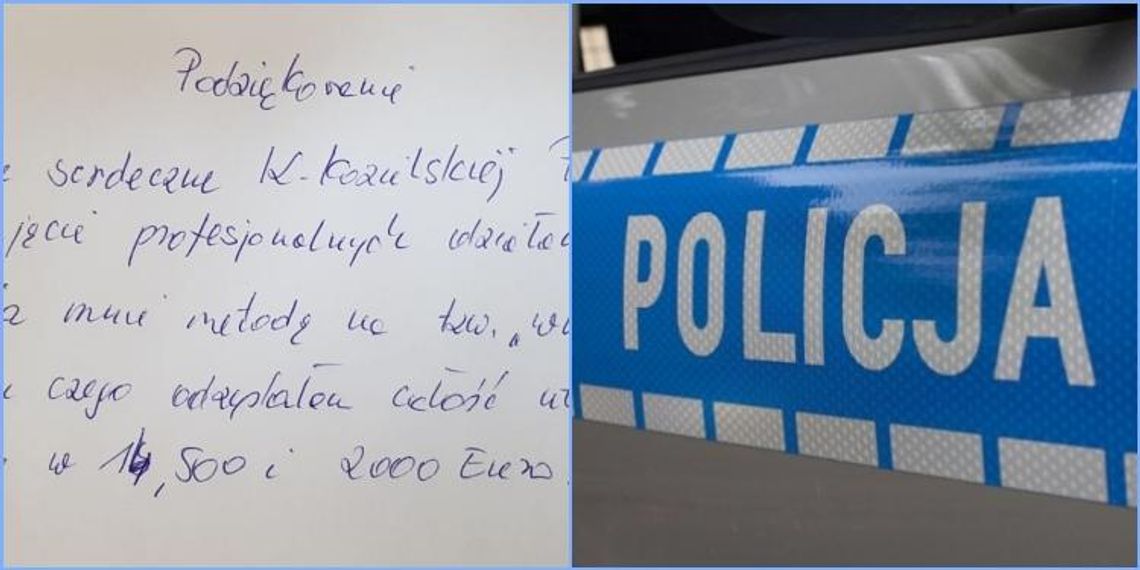 Podziękowanie
serdeczne K. Kozielskiej
jęcie profesjonalnych działań
mnie metodę na tzw. „wn
czego odzyskałem całość
w 14,500 i 2000 Euro.
POLICJA